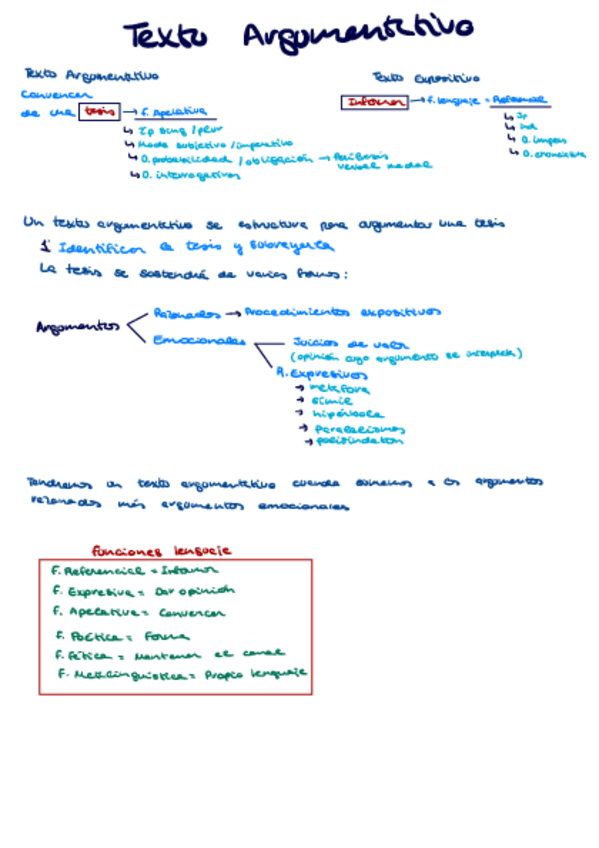 Texto Argumentativo
Texto Argumentativo
Convencer
de una tesis → F. Apelativa
↳ 2p sing / plur
↳ Modo subjetivo / imperativo
↳ O. probabilidad / obligación → Perífrasis verbal modal
↳ O. interrogativas
Texto Expositivo
Informar → F. lenguaje = Referencial
↳ 3p
↳ Ind
↳ O. impers
↳ O. enunciativa
Un texto argumentativo se estructura para argumentar una tesis
1º Identificar la tesis y subrayarla
La tesis se sostendrá de varias formas:
Argumentos
Razonados → Procedimientos expositivos
Emocionales
Juicios de valor
(opinión cuyo argumento se interpreta)
R. Expresivos
→ metáfora
→ símil
→ hipérbole
→ paralelismos
→ polisíndeton
Tendremos un texto argumentativo cuando sumemos a los argumentos
razonados más argumentos emocionales
Funciones lenguaje
F. Referencial = Informar
F. Expresiva = Dar opinión
F. Apelativa = Convencer
F. Poética = Forma
F. Fática = Mantener el canal
F. Metalinguística = Propio lenguaje